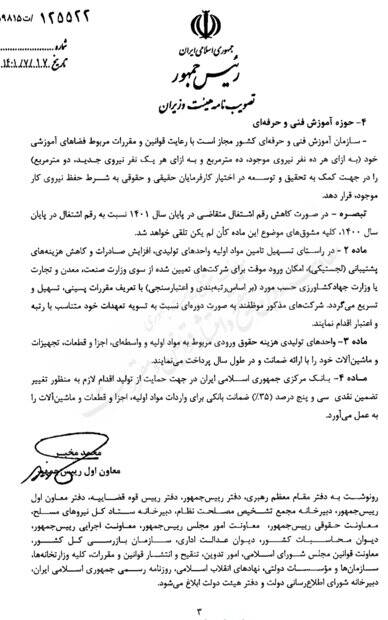 ۱۲۵۵۲۲/ت۵۹۸۱۵
جمهوری اسلامی ایران
شماره
رئیس جمهور
تاریخ ۱۴۰۱/۰۷/۱۷
تصویب‌نامه هیئت وزیران
۴- حوزه آموزش فنی و حرفه‌ای
- سازمان آموزش فنی و حرفه‌ای کشور مجاز است با رعایت قوانین و مقررات مربوط فضاهای آموزشی
خود (به ازای هر ده نفر نیروی موجود، ده مترمربع و به ازای هر یک نفر نیروی جدید، دو مترمربع)
را در جهت کمک به تحقیق و توسعه در اختیار کارفرمایان حقیقی و حقوقی به شرط حفظ نیروی کار
موجود، قرار دهد.
تبصره - در صورت کاهش رقم اشتغال متقاضی در پایان سال ۱۴۰۱ نسبت به رقم اشتغال در پایان
سال ۱۴۰۰، کلیه مشوق‌های موضوع این ماده کأن لم یکن تلقی خواهد شد.
ماده ۲ - در راستای تسهیل تامین مواد اولیه واحدهای تولیدی، افزایش صادرات و کاهش هزینه‌های
پشتیبانی (لجستیکی)، امکان ورود موقت برای شرکت‌های تعیین شده از سوی وزارت صنعت، معدن و تجارت
یا وزارت جهادکشاورزی حسب مورد (بر اساس رتبه‌بندی و اعتبارسنجی) با تعریف مقررات پسینی، تسهیل و
تسریع می‌گردد. شرکت‌های مذکور موظفند به صورت دوره‌ای نسبت به تسویه تعهدات خود متناسب با رتبه
و اعتبار اقدام نمایند.
ماده ۳- واحدهای تولیدی هزینه حقوق ورودی مربوط به مواد اولیه و واسطه‌ای، اجزا و قطعات، تجهیزات
و ماشین‌آلات خود را با ارائه ضمانت و در طول سال پرداخت می‌نمایند.
ماده ۴- بانک مرکزی جمهوری اسلامی ایران در جهت حمایت از تولید اقدام لازم به منظور تغییر
تضمین نقدی سی و پنج درصد (۳۵٪) ضمانت بانکی برای واردات مواد اولیه، اجزا و قطعات و ماشین‌آلات را
به عمل می‌آورد.
محمد مخبر
معاون اول رییس جمهور
رونوشت به دفتر مقام معظم رهبری، دفتر رییس‌جمهور، دفتر رییس قوه قضاییه، دفتر معاون اول
رییس‌جمهور، دبیرخانه مجمع تشخیص مصلحت نظام، دبیرخانه ستاد کل نیروهای مسلح،
معاونت حقوقی رییس‌جمهور، معاونت امور مجلس رییس‌جمهور، معاونت اجرایی رییس‌جمهور،
دیوان محاسبات کشور، دیوان عدالت اداری، سازمان بازرسی کل کشور،
معاونت قوانین مجلس شورای اسلامی، امور تدوین، تنقیح و انتشار قوانین و مقررات، کلیه وزارتخانه‌ها،
سازمان‌ها و مؤسسات دولتی، نهادهای انقلاب اسلامی، روزنامه رسمی جمهوری اسلامی ایران،
دبیرخانه شورای اطلاع‌رسانی دولت و دفتر هیئت دولت ابلاغ می‌شود.
۳